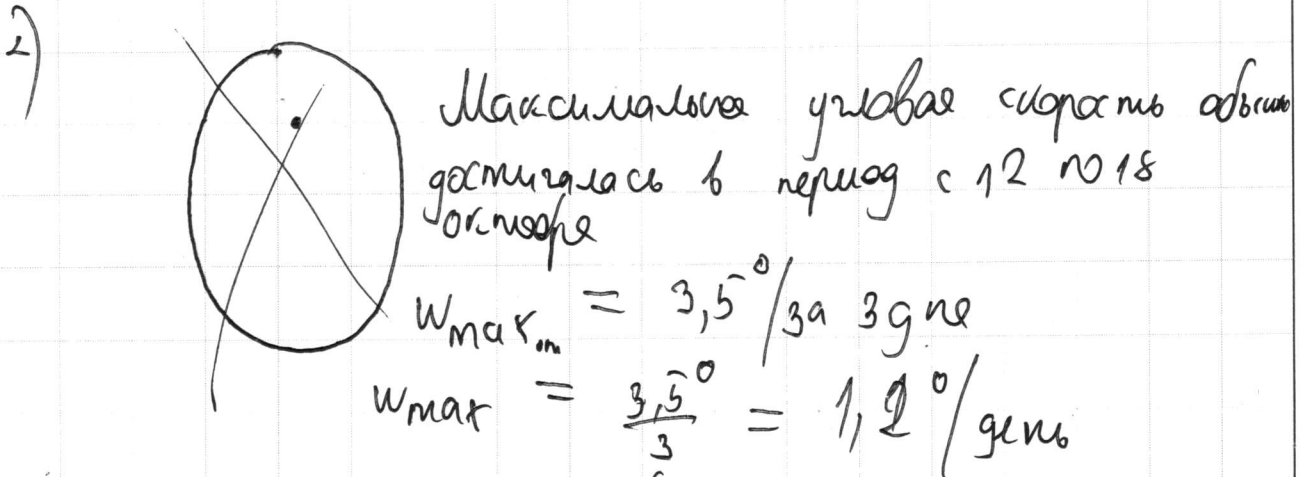 2)
Максимальная угловая скорость обычно
достигалась в период с 12 по 18
октября
Wmax = 3,5°/за 3 дня
Wmax = 3,5°/3 = 1,2°/день